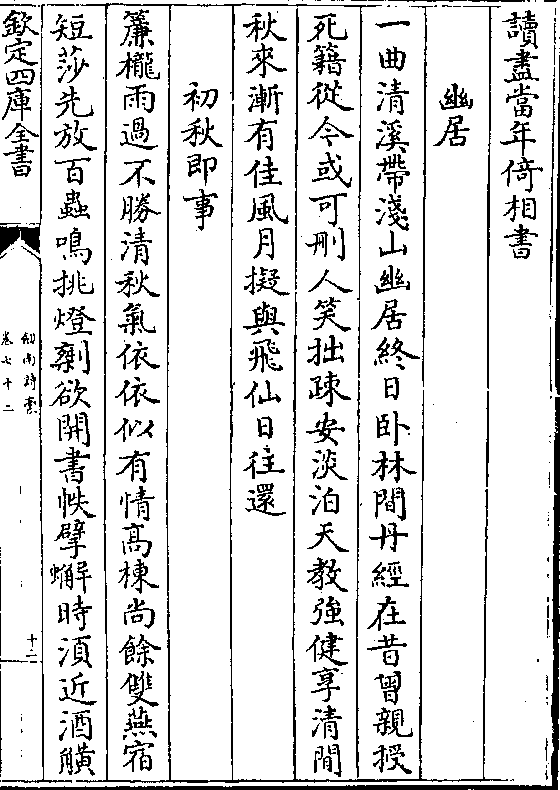 讀盡當年倚相書
幽居
一曲清溪帶淺山幽居終日卧林間丹經在昔曽親授
死籍從今或可刪人笑拙疎安淡泊天教強健享清閒
秋來漸有佳風月擬與飛仙日往還
初秋即事
簾櫳雨過不勝清秋氣依依似有情高棟尚餘雙燕宿
短莎先放百蟲鳴挑燈劇欲開書帙擘蠏時須近酒觥
欽定四庫全書
劍南詩藁
卷七十二
十二